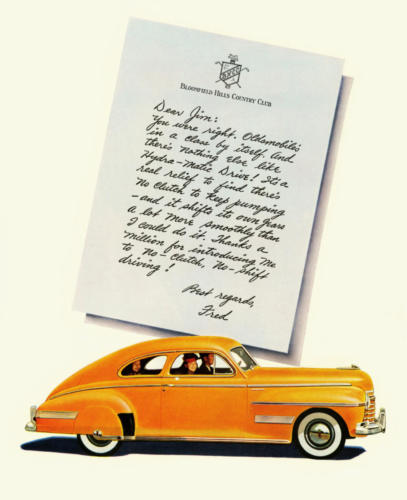 BLOOMFIELD HILLS COUNTRY CLUB
Dear Jim:
You were right. Oldsmobile's
in a class by itself. And
there's nothing else like
Hydra-Matic Drive! It's a
real relief to find there's
No Clutch to keep pumping
-and it shifts its own gears
a lot more smoothly than
I could do it. Thanks a
million for introducing me
to No-Clutch, No-Shift
driving!
Best regards,
Fred